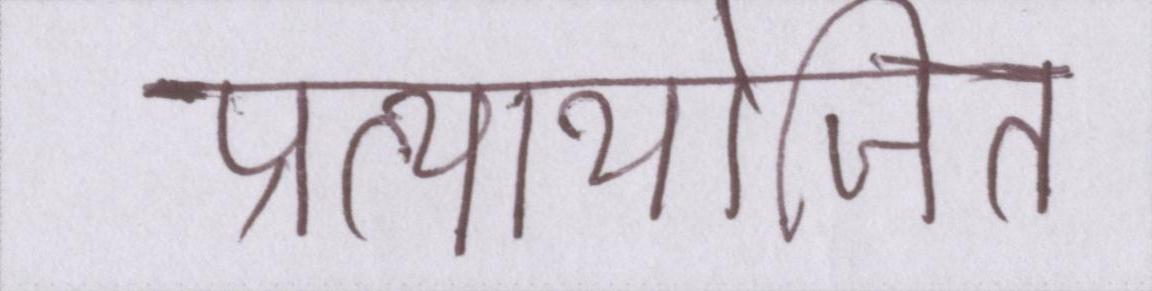 प्रत्यायोजित